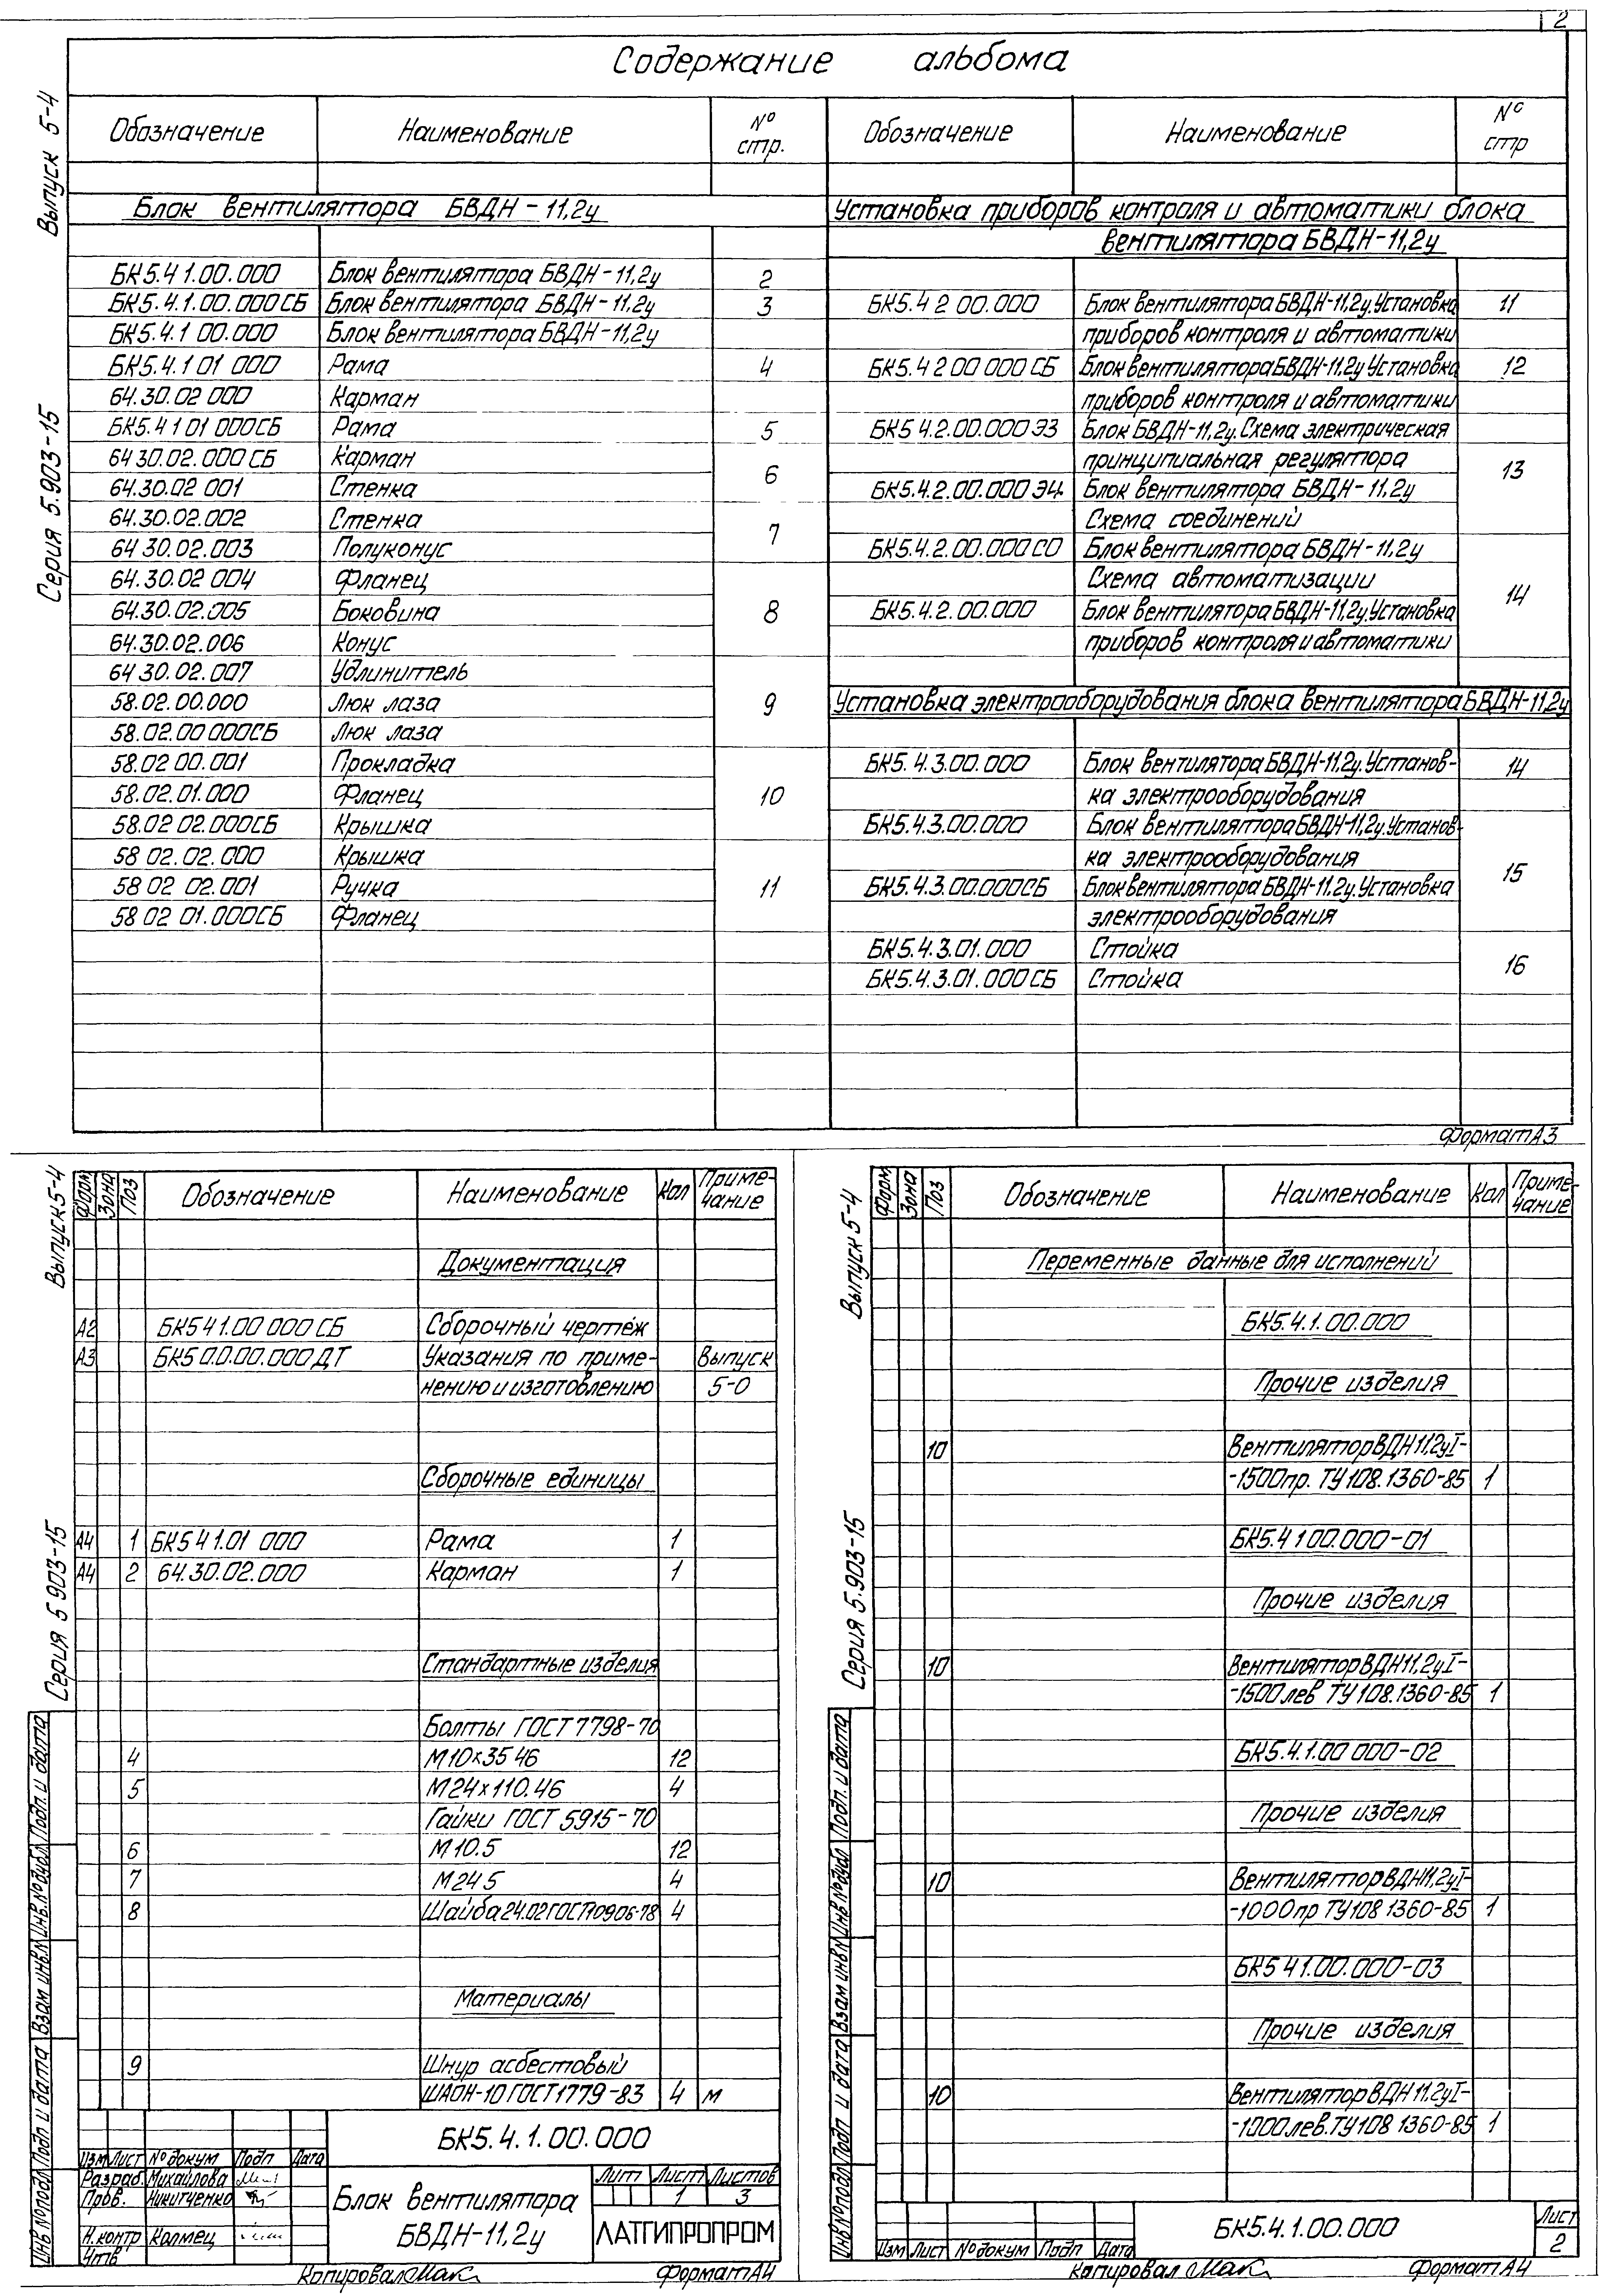 2
Содержание альбома
Выпуск 5-4
Серия 5.903-15
Обозначение Наименование № стр.
Блок вентилятора БВДН-11,2у
БК5.4 1.00.000 Блок вентилятора БВДН-11,2у 2
БК5.4.1.00.000СБ Блок вентилятора БВДН-11,2у 3
БК5.4.1 00.000 Блок вентилятора БВДН-11,2у
БК5.4.1 01 000 Рама 4
64.30.02 000 Карман
БК5.4 1 01 000СБ Рама 5
64 30.02.000СБ Карман
6
64.30.02 001 Стенка
64.30.02.002 Стенка
7
64 30.02.003 Полуконус
64.30.02 004 Фланец
64.30.02.005 Боковина 8
64.30.02.006 Конус
64 30.02.007 Удлинитель
58.02.00.000 Люк лаза 9
58.02.00 000СБ Люк лаза
58.02 00.001 Прокладка
58.02.01.000 Фланец 10
58.02 02.000СБ Крышка
58 02.02.000 Крышка
58 02 02.001 Ручка 11
58 02 01.000СБ Фланец
Обозначение Наименование № стр
Установка приборов контроля и автоматики блока
вентилятора БВДН-11,2у
БК5.4 2 00.000 Блок вентилятора БВДН-11,2у.Установка 11
приборов контроля и автоматики
БК5.4 2 00 000 СБ Блок вентилятора БВДН-11.2у Установка 12
приборов контроля и автоматики
БК5 4.2.00.000Э3 Блок БВДН-11,2у.Схема электрическая
принципиальная регулятора
13
БК5.4.2.00.000Э4 Блок вентилятора БВДН-11,2у
Схема соединений
БК5.4.2.00.000СО Блок вентилятора БВДН-11.2у
Схема автоматизации
14
БК5.4.2.00.000 Блок вентилятора БВДН-11,2у.Установка
приборов контроля и автоматики
Установка электрооборудования блока вентилятора БВДН-11,2у
БК5.4.3.00.000 Блок вентилятора БВДН-11.2у.Установ- 14
ка электрооборудования
БК5.4.3.00.000 Блок вентилятора БВДН-11,2у.Установ-
ка электрооборудования
15
БК5.4.3.00.000СБ Блок вентилятора БВДН-11.2у.Установка
электрооборудования
БК5.4.3.01.000 Стойка
16
БК5.4.3.01.000СБ Стойка
Формат А3
Выпуск 5-4
Серия 5 903-15
Форм Зона Поз Обозначение Наименование Кол Приме-
чание
Документация
А2 БК5 4 1.00 000 СБ Сборочный чертёж
А3 БК5 0.0.00.000 ДТ Указания по приме- Выпуск
нению и изготовлению 5-0
Сборочные единицы
А4 1 БК5 4 1.01 000 Рама 1
А4 2 64.30.02.000 Карман 1
Стандартные изделия
Болты ГОСТ 7798-70
4 М10×35 46 12
5 М24×110.46 4
Гайки ГОСТ 5915-70
6 М10.5 12
7 М24 5 4
8 Шайба 24.02 ГОСТ 10906-78 4
Материалы
9 Шнур асбестовый
ШАОН-10 ГОСТ 1779-83 4 м
Подп. и дата
Инв.№ дубл.
Взам инв.№
Подп и дата
Инв № подл
Изм Лист № докум Подп Дата
Разраб. Михайлова
Пров. Никитченко
Н.контр Колмец
Утв
БК5.4.1.00.000
Блок вентилятора
БВДН-11,2у
Лит Лист Листов
1 3
ЛАТГИПРОПРОМ
Копировал Мак Формат А4
Выпуск 5-4
Серия 5.903-15
Форм Зона Поз Обозначение Наименование Кол Приме-
чание
Переменные данные для исполнений
БК5.4.1.00.000
Прочие изделия
10 Вентилятор ВДН 11.2уI-
-1500пр. ТУ108.1360-85 1
БК5.4 1 00.000-01
Прочие изделия
10 Вентилятор ВДН 11,2уI-
-1500лев ТУ108.1360-85 1
БК5.4.1.00 000-02
Прочие изделия
10 Вентилятор ВДН 11,2уI-
-1000пр ТУ108 1360-85 1
БК5 4 1.00.000-03
Прочие изделия
10 Вентилятор ВДН 11.2уI-
-1000лев.ТУ108 1360-85 1
Подп. и дата
Инв № дубл
Взам инв №
Подп и дата
Инв № подл
Изм Лист № докум Подп Дата
БК5.4.1.00.000
Лист
2
Копировал Мак Формат А4